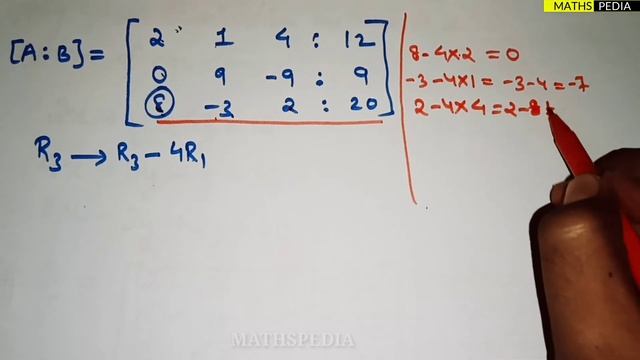 MATHS PEDIA
[A:B] = [ 2 1 4 : 12
0 9 -9 : 9
8 -3 2 : 20 ]
R₃ ⟶ R₃ - 4R₁
8 - 4×2 = 0
-3 - 4×1 = -3-4 = -7
2 - 4×4 = 2-
MATHSPEDIA